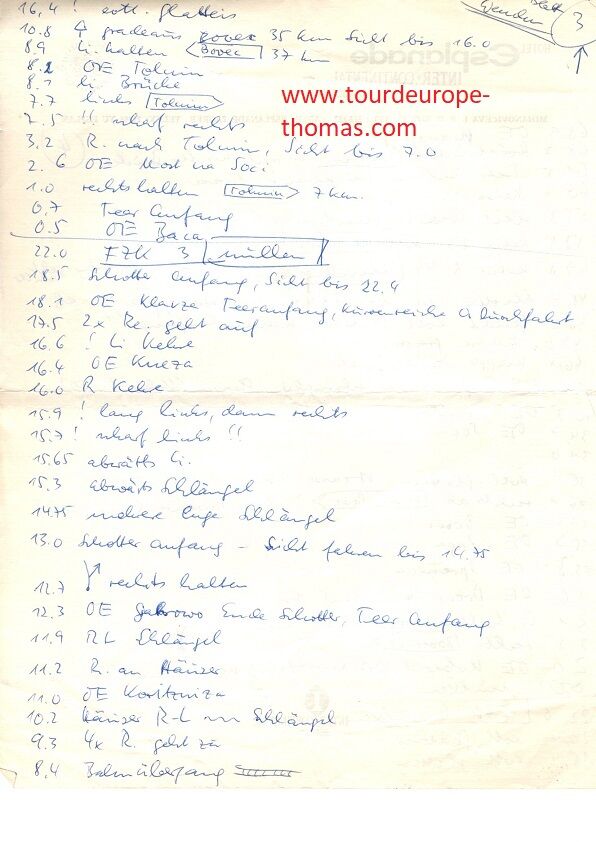 Blatt
wenden
3
HOTEL
Esplanade
INTER·CONTINENTAL
16,4 ! evtl. Glatteis
10.8 ↑ gradeaus Bovec 35 km Sicht bis 16.0
8.9 li. halten Bovec 37 km
8.2 OE Tolmin
8.1 li. Brücke
7.7 links Tolmin
www.tourdeurope-
thomas.com
7.5 !! scharf rechts
3,2 R. nach Tolmin, Sicht bis 7.0
2.6 OE Most na Soci
1.0 rechts halten Tolmin 7 km.
0,7 Teer Anfang
0.5 OE Baca
22.0 FZK 3 nullen
18.5 Schotter Anfang, Sicht bis 22,4
18.1 OE Klavze Teeranfang, kurvenreiche Durchfahrt
17.5 2x Re. geht auf
16.6 ! Li Kehre
16.4 OE Kneza
16.0 R Kehre
15.9 ! lang links, dann rechts
15.7 ! scharf links !!
15.65 abwärts li.
15.3 abwärts Schlängel
14.75 mehrere enge Schlängel
13.0 Schotter anfang – Sicht fahren bis 14.75
12.7 rechts halten
12.3 OE Ende Schotter, Teer Anfang
11.9 RL Schlängel
11.2 R. an Häuser
11.0 OE Koritnica
10.2 Häuser R-L Schlängel
9.3 4x R. geht zu
8,4 Bahnübergang